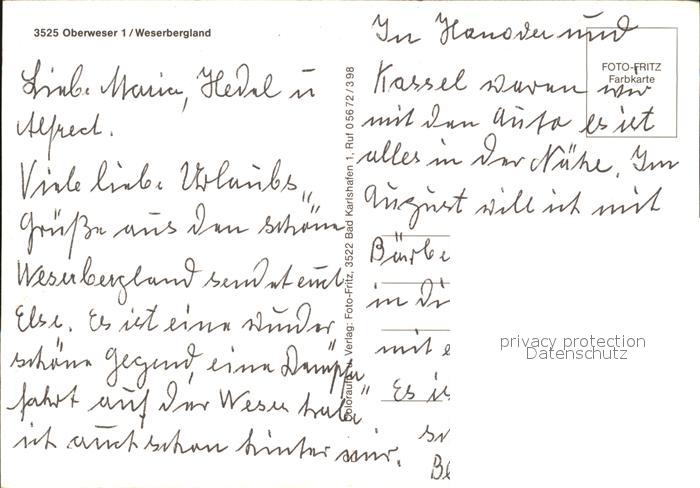 3525 Oberweser 1 / Weserbergland
Liebe Maria, Hedel u
Alfred.
Viele liebe Urlaubs„
Grüße aus den schöne
Weserbergland sendet euch
Else. Es ist eine wunder
schöne Gegend, eine Dampfer
fahrt auf der Weser habe"
ich auch schon hinter mir.
Verlag: Foto-Fritz, 3522 Bad Karlshafen 1, Ruf 0 56 72 / 3 98
In Hanover und
Kassel waren wir
mit den Auto es ist
alles in der Nähe. Im
August will ich mit
Bärbe
in di
mit e
Es is
sc
Be
FOTO-FRITZ
Farbkarte
privacy protection
Datenschutz